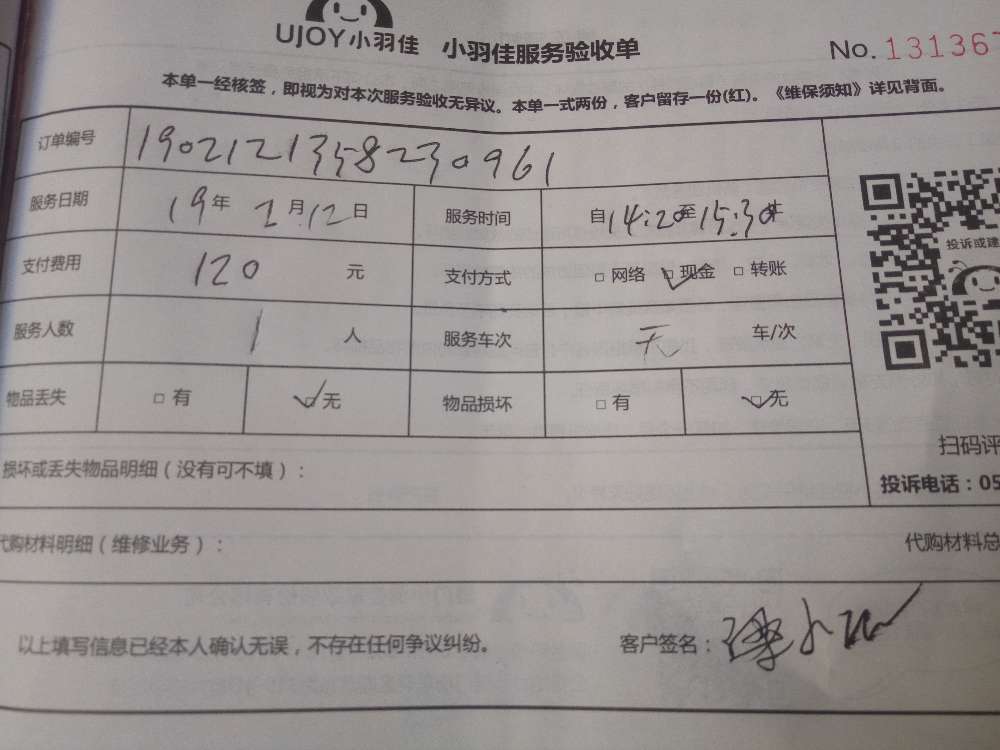 UJOY小羽佳 小羽佳服务验收单 No. 131367
本单一经核签，即视为对本次服务验收无异议。本单一式两份，客户留存一份(红)。《维保须知》详见背面。
订单编号 1902121358230961
服务日期 19年 2月12日 服务时间 自14:20至15:30
支付费用 120 元 支付方式 □ 网络 □ 现金 □ 转账
投诉或建
服务人数 1 人 服务车次 无 车/次
物品丢失 □ 有 □ 无 物品损坏 □ 有 □ 无
扫码评
损坏或丢失物品明细（没有可不填）：
投诉电话：05
代购材料明细（维修业务）： 代购材料总
以上填写信息已经本人确认无误，不存在任何争议纠纷。 客户签名：